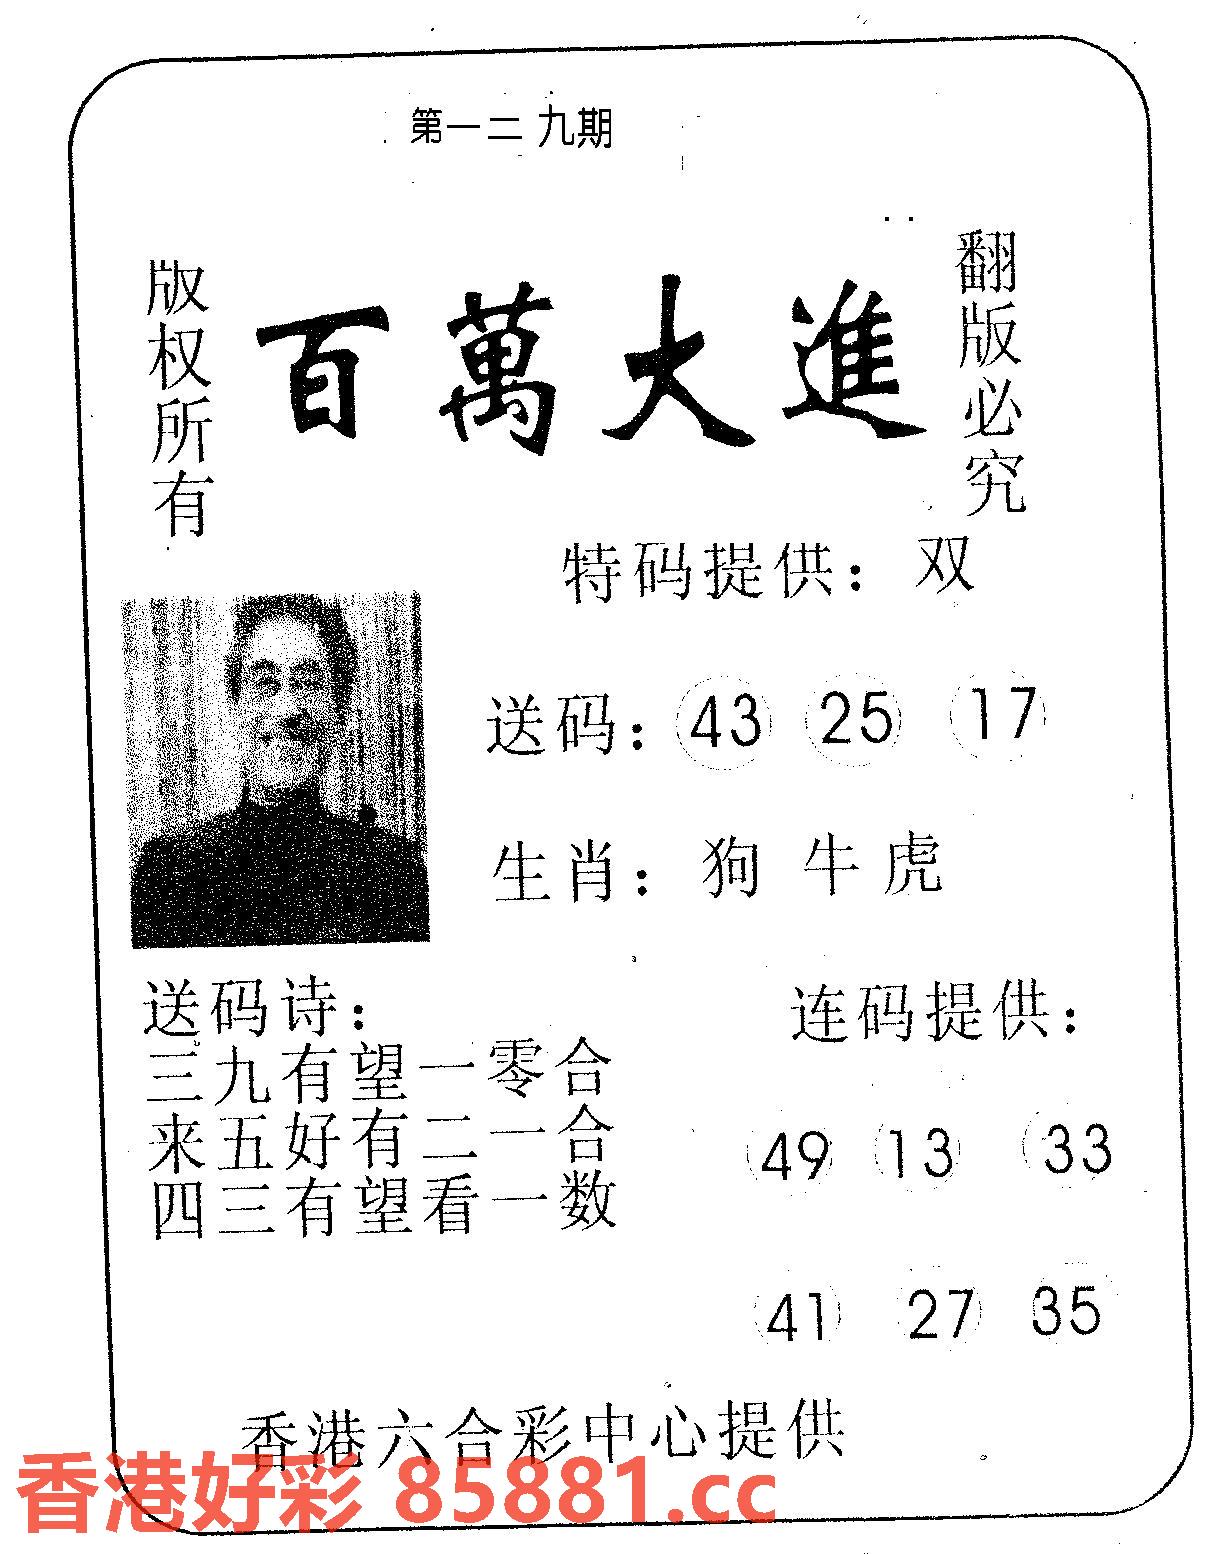 第一二九期
版权所有
百萬大進
翻版必究
特码提供：双
送码：43 25 17
生肖：狗 牛 虎
送码诗：
三九有望一零合
来五好有二一合
四三有望看一数
连码提供：
49 13 33
41 27 35
香港六合彩中心提供
香港好彩 85881.cc